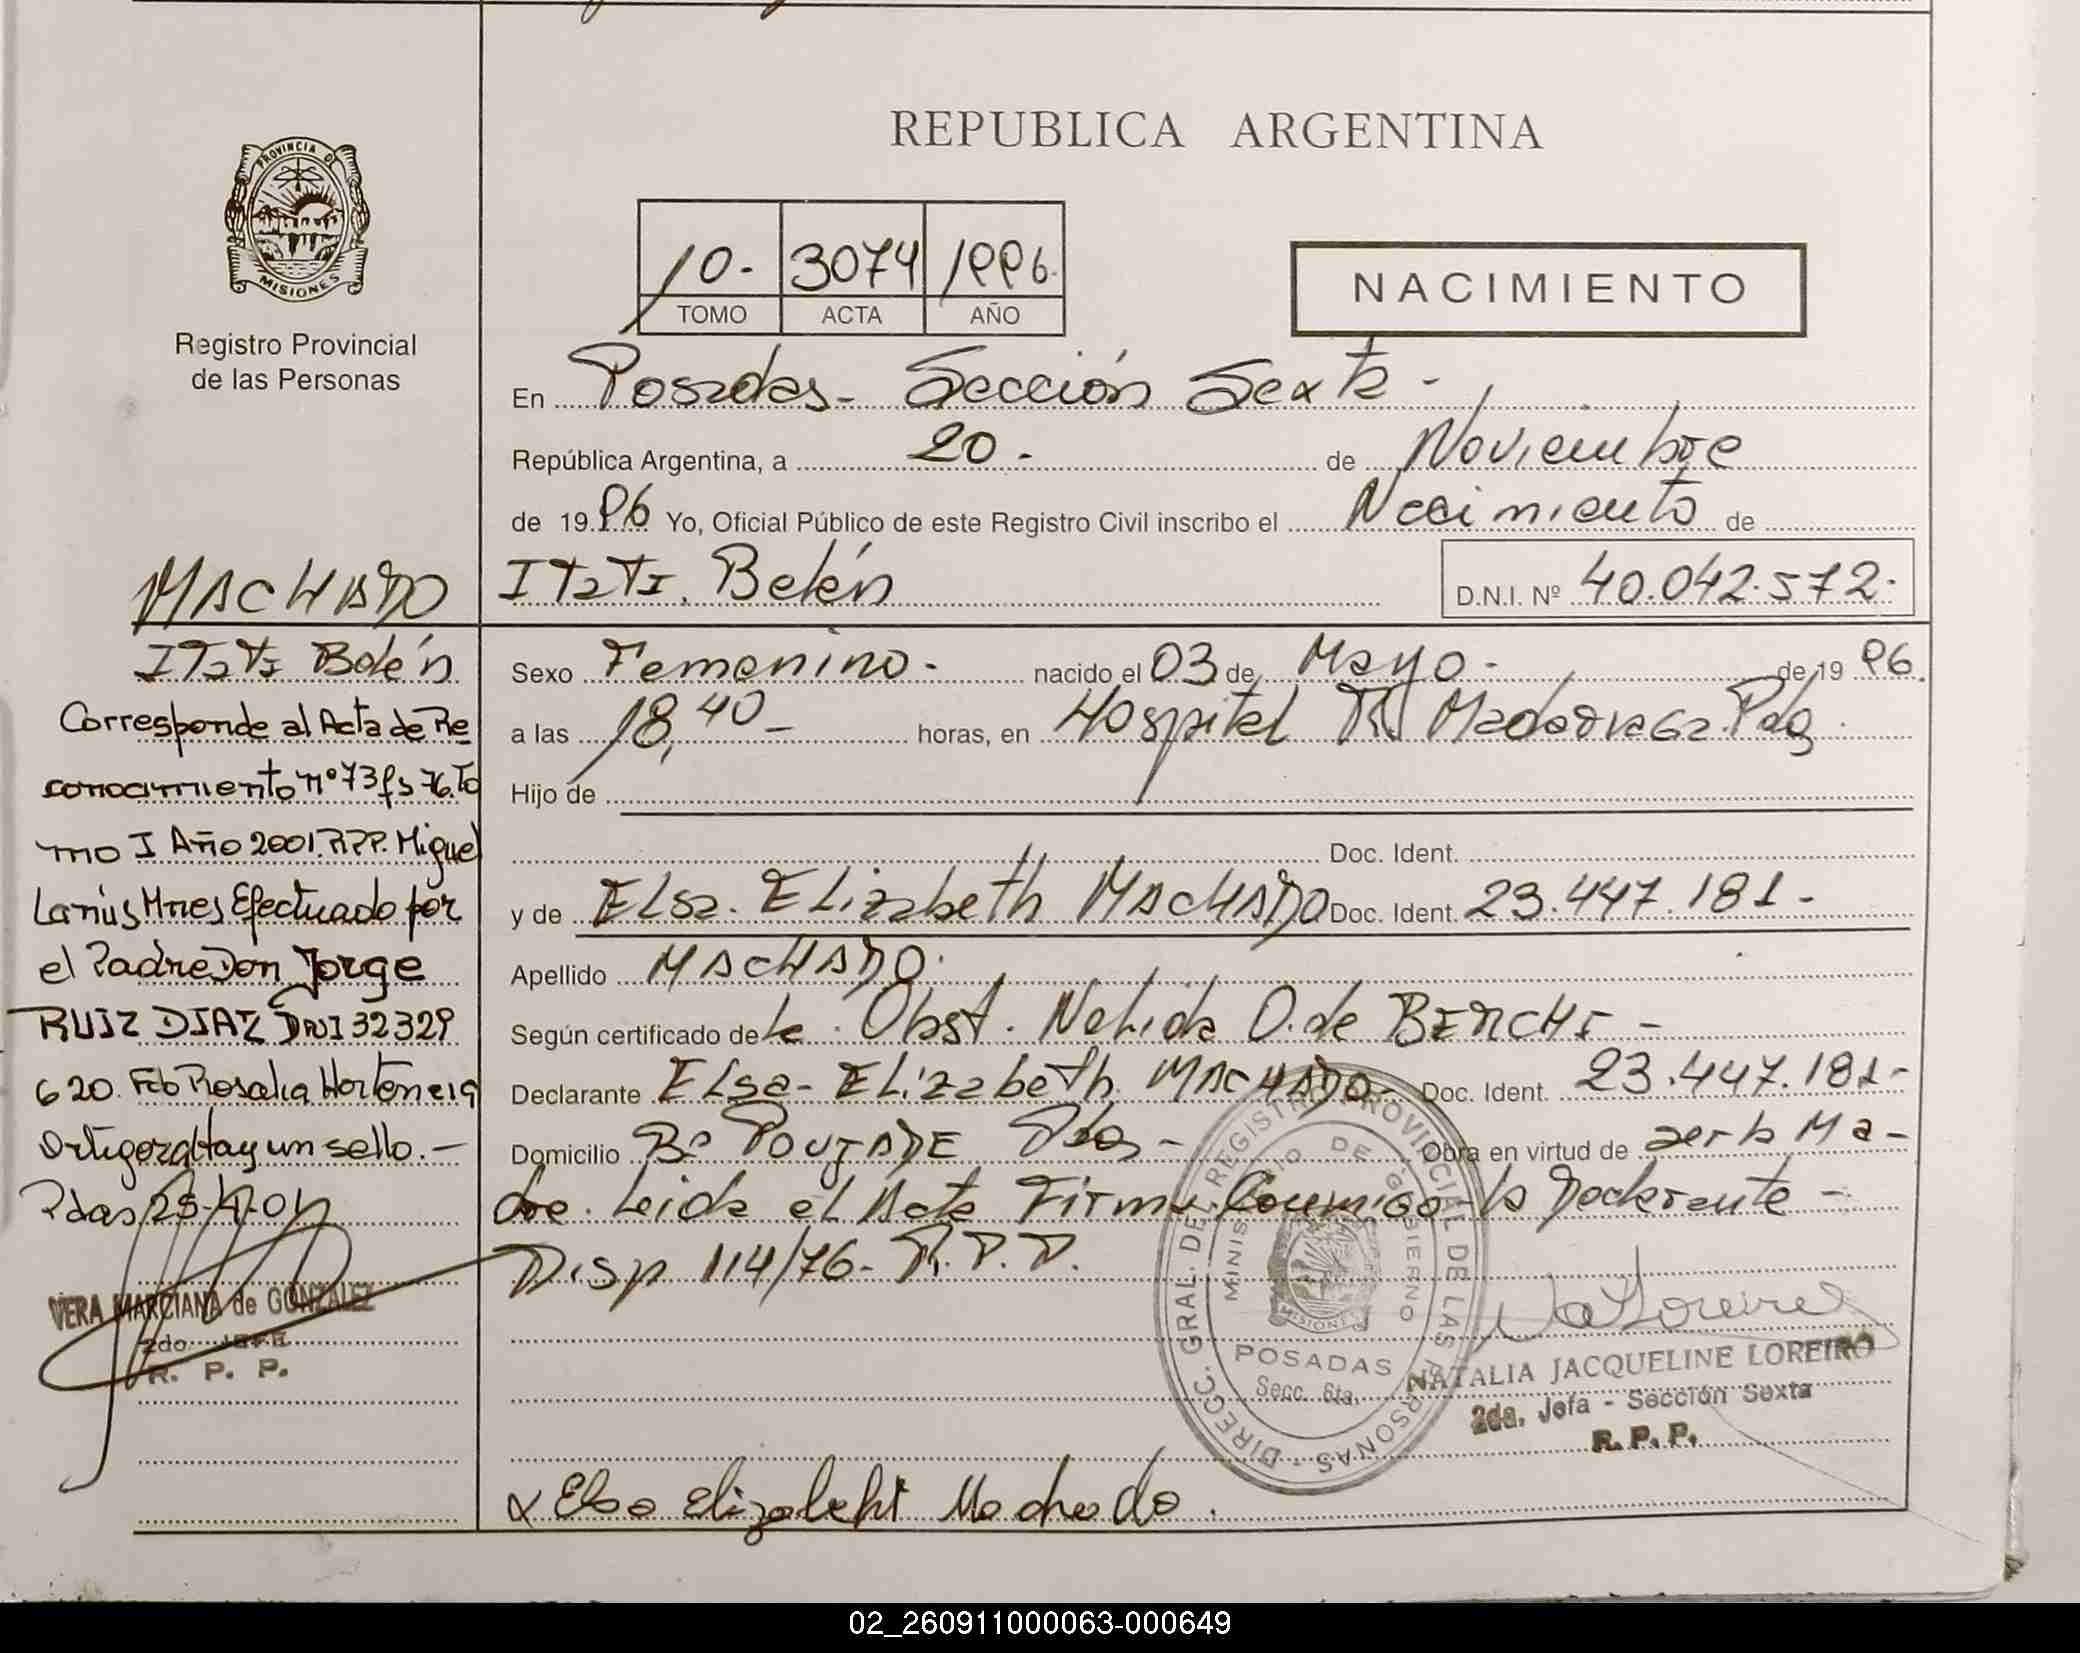 REPUBLICA ARGENTINA
PROVINCIA DE
MISIONES
Registro Provincial
de las Personas
10.- 3074 1996.
TOMO ACTA AÑO
NACIMIENTO
En Posadas - Sección Sexta -
República Argentina, a 20 - de Noviembre
de 19 96 Yo, Oficial Público de este Registro Civil inscribo el Nacimiento de
Itatí Belén D.N.I. Nº 40.042.572.
MACHADO
Itatí Belén
Corresponde al Acta de Re
conocimiento nº 73 fs 76. To
mo I Año 2001. RPP. Miguel
Lanús Mnes Efectuado por
el Padre Don Jorge
RUIZ DIAZ DNI 32329
620. Fdo Rosalia Hortencia
Ortigoza Hay un sello. -
Pdas 25-4-01
VERA MARCIANA de GONZALEZ
2do. JEFE
R. P. P.
Sexo Femenino - nacido el 03 de Mayo - de 19 96.
a las 18,40 - horas, en Hospital R. Madariaga Pdas
Hijo de
Doc. Ident.
y de Elsa Elizabeth MACHADO Doc. Ident. 23.447.181 -
Apellido MACHADO.
Según certificado de la Obst. Nelida O. de
Declarante Elsa Elizabeth MACHADO - Doc. Ident. 23.447.181 -
Domicilio Bº POUJADE Pdas - Obra en virtud de ser la Ma -
dre. Leida el Acta Firma Conmigo la Declarante -
Disp 114/76 - R.P.P.
DIRECC. GRAL. DEL REGISTRO PROVINCIAL DE LAS PERSONAS
MINISTERIO DE GOBIERNO
MISIONES
POSADAS
Secc. 6ta.
NATALIA JACQUELINE LOREIRO
2da. Jefa - Sección Sexta
R. P. P.
x Elsa Elizabeht Machado.
02_260911000063-000649